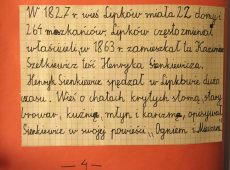 W 1827 r. wieś Lipków miała 22 domy i
264 mieszkańców. Lipków często zmieniał
właścicieli, w 1863 r. zamieszkał tu Kazimierz
Szetkiewicz teść Henryka Sienkiewicza.
Henryk Sienkiewicz spędzał w Lipkowie dużo
czasu. Wieś o chatach krytych słomą, stary
browar, kuźnię, młyn i karczmę, opisywał
Sienkiewicz w swojej powieści „Ogniem i Mieczem
— 4 —